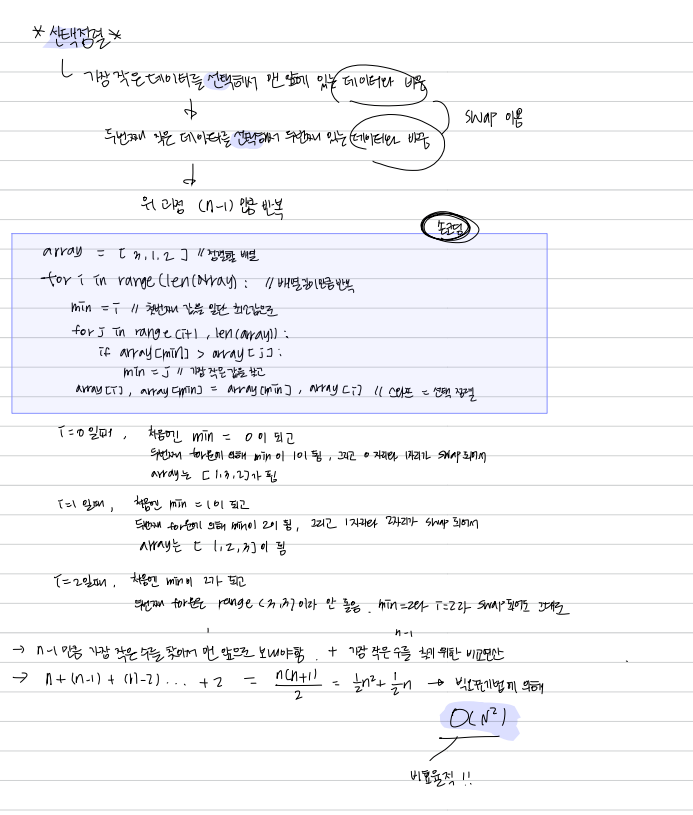 * 선택정렬 *
ㄴ 가장 작은 데이터를 선택해서 맨 앞에 있는 데이터와 바꿈
두번째 작은 데이터를 선택해서 두번째 있는 데이터와 바꿈
swap 이용
위 과정 (n-1) 만큼 반복
손코딩
array = [3,1,2] // 정렬할 배열
for i in range(len(array): // 배열길이만큼 반복
min = i // 첫번째 값을 일단 최소값으로
for j in range(i+1, len(array)):
if array[min] > array[j]:
min = j // 가장 작은 값을 찾고
array[i], array[min] = array[min], array[i] // 스와프 = 선택 정렬
i=0 일때, 처음엔 min = 0 이 되고
두번째 for문에 의해 min이 1이 됨, 그리고 0자리와 1자리가 swap되어서
array는 [1,3,2]가 됨
i=1 일때, 처음엔 min = 1이 되고
두번째 for문에 의해 min이 2이 됨, 그리고 1자리와 2자리가 swap 되어서
array는 [1,2,3]이 됨
i=2일때, 처음엔 min이 2가 되고
두번째 for문은 range(3,3)이라 안 돌음. min=2와 i=2라 swap되어도 그대로
n-1
→ n-1 만큼 가장 작은 수를 찾아서 맨 앞으로 보내야함. + 가장 작은 수를 찾기 위한 비교연산
→ n + (n-1) + (n-2) ... + 2 = n(n+1)/2 = 1/2n² + 1/2n → 빅오표기법에 의해
O(N²)
비효율적 !!